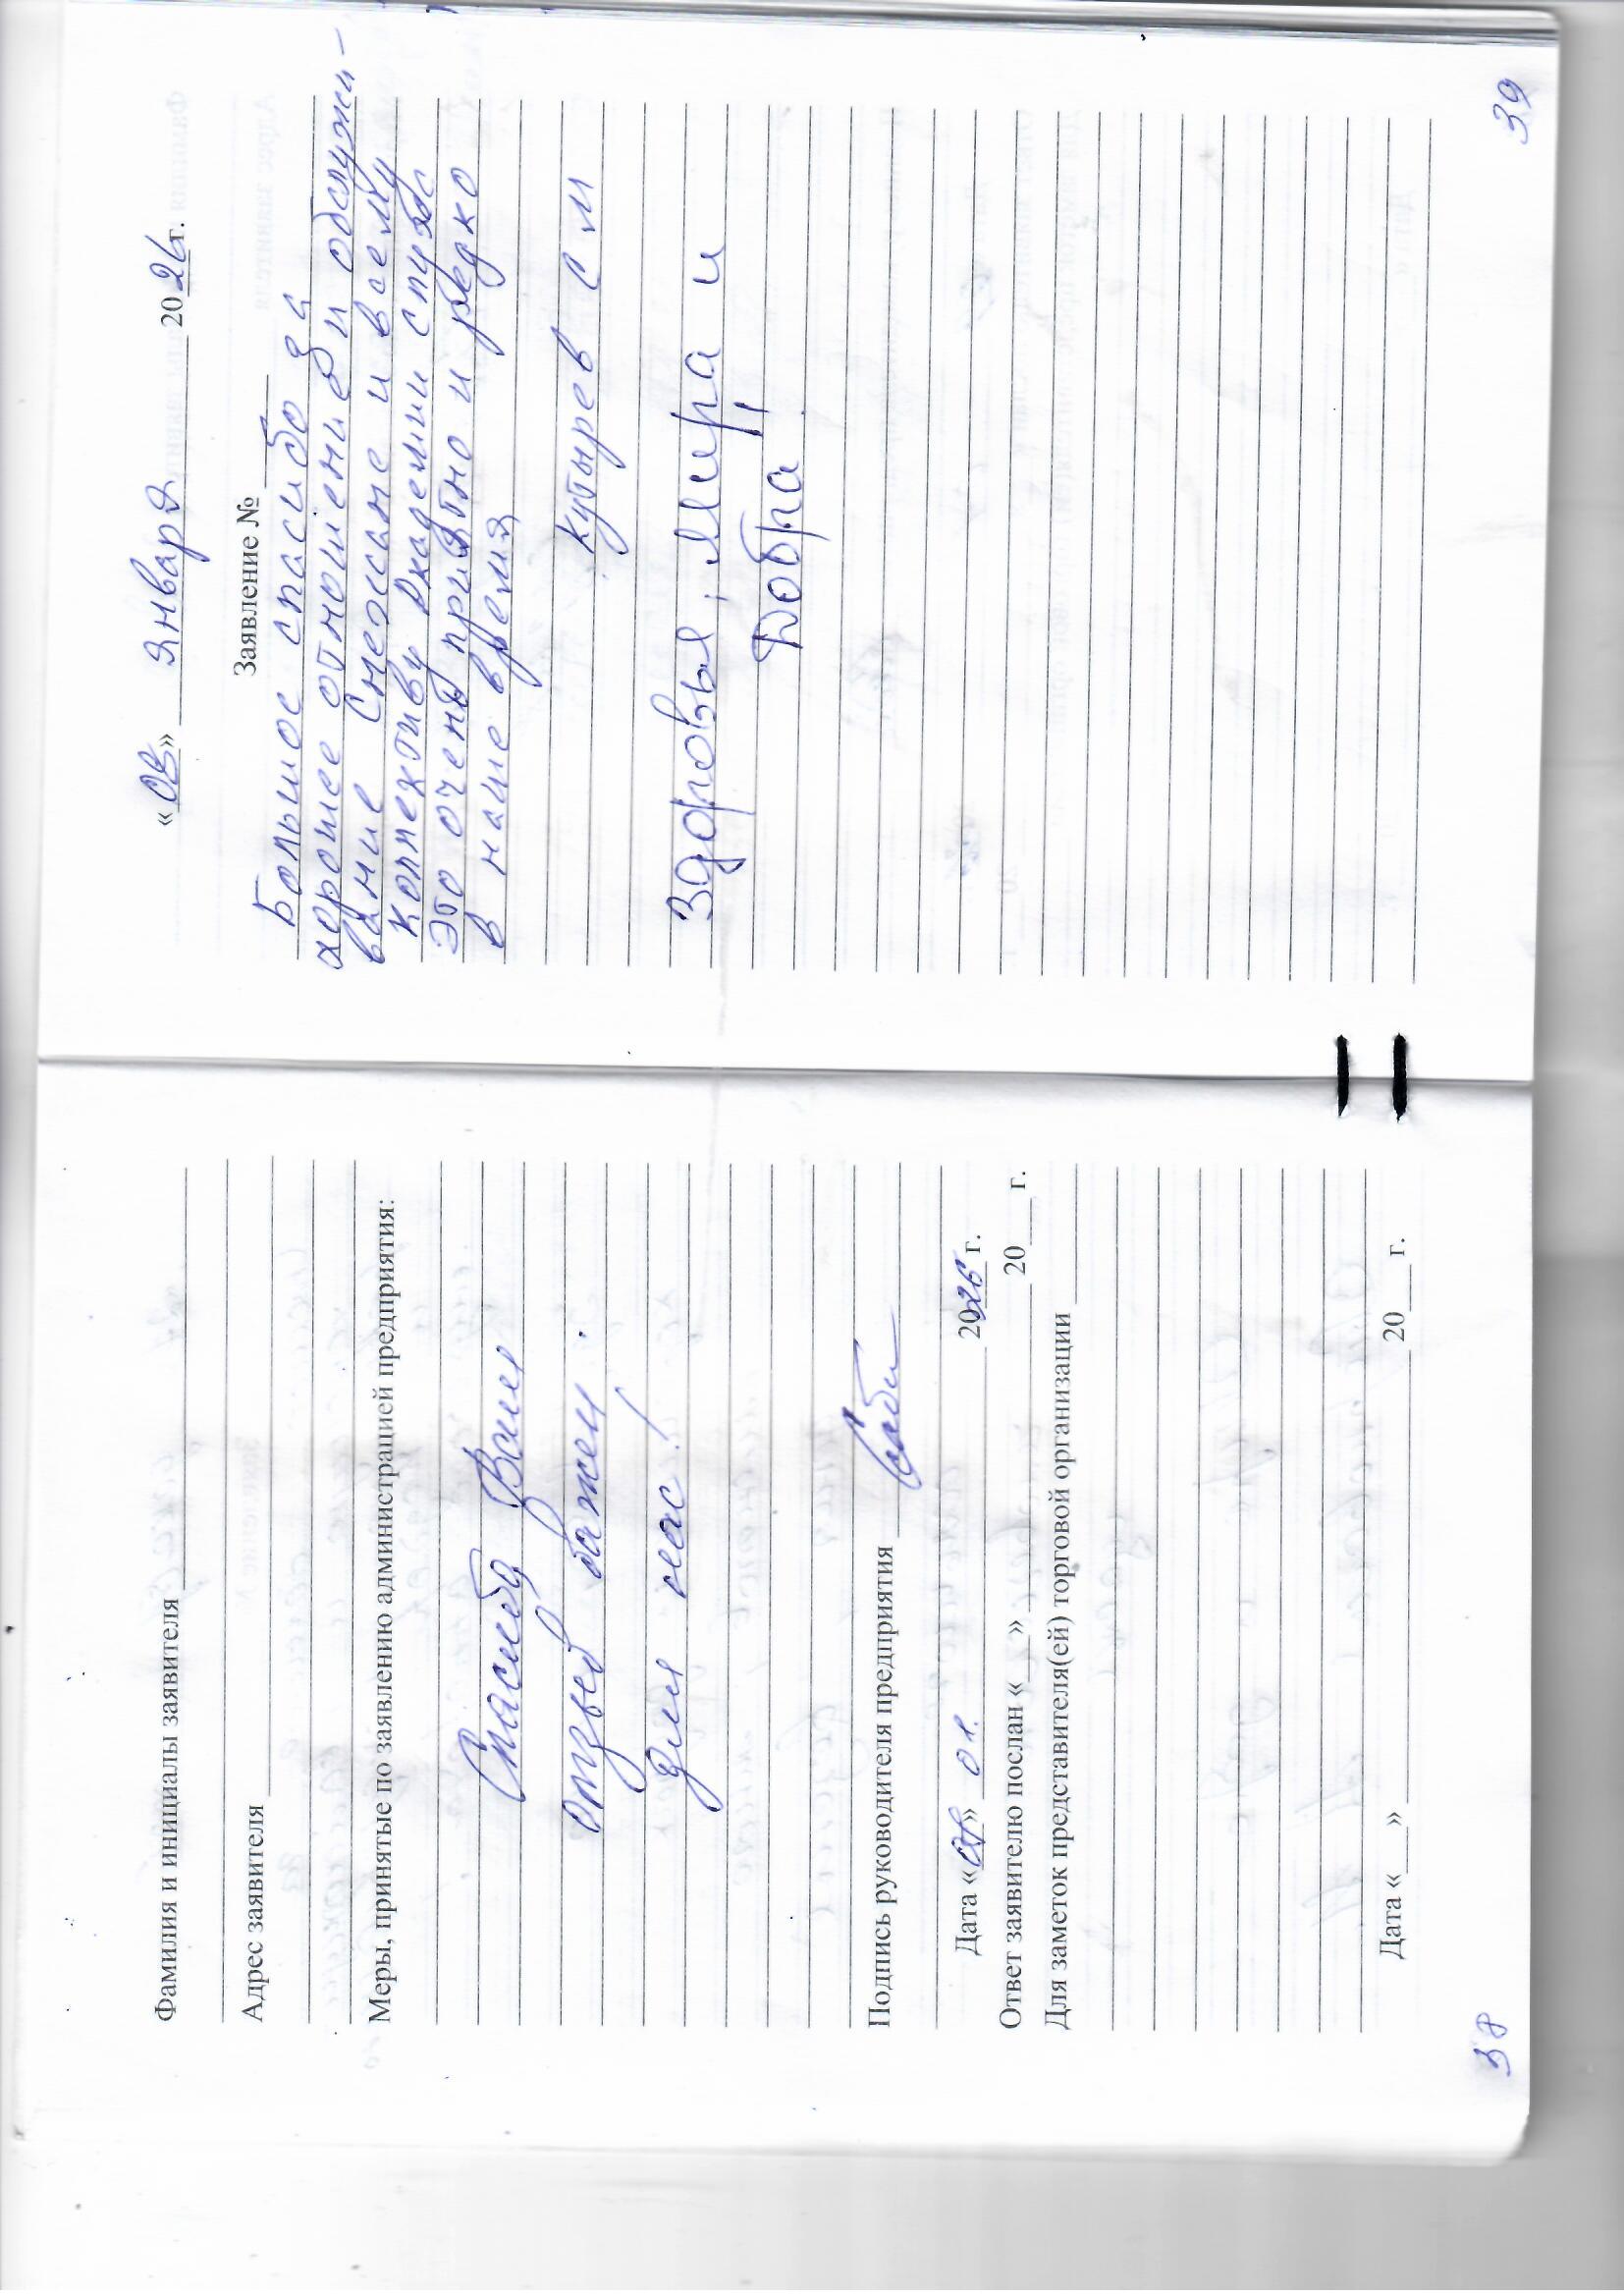 Фамилия и инициалы заявителя
Адрес заявителя
Меры, принятые по заявлению администрацией предприятия:
Спасибо Ваш
отзыв важен
для нас!
Подпись руководителя предприятия
Дата « » 01. 2026 г.
Ответ заявителю послан « » 20 г.
Для заметок представителя(ей) торговой организации
Дата « » 20 г.
38
«08» Января 2026г.
Заявление №
Большое спасибо за
хорошее отношение и обслужи-
вание Снежане и всему
коллективу Академии спубс
Это очень приятно и редко
в наше время
Кутырев С М
Здоровья, Мира и
Добра!!
39